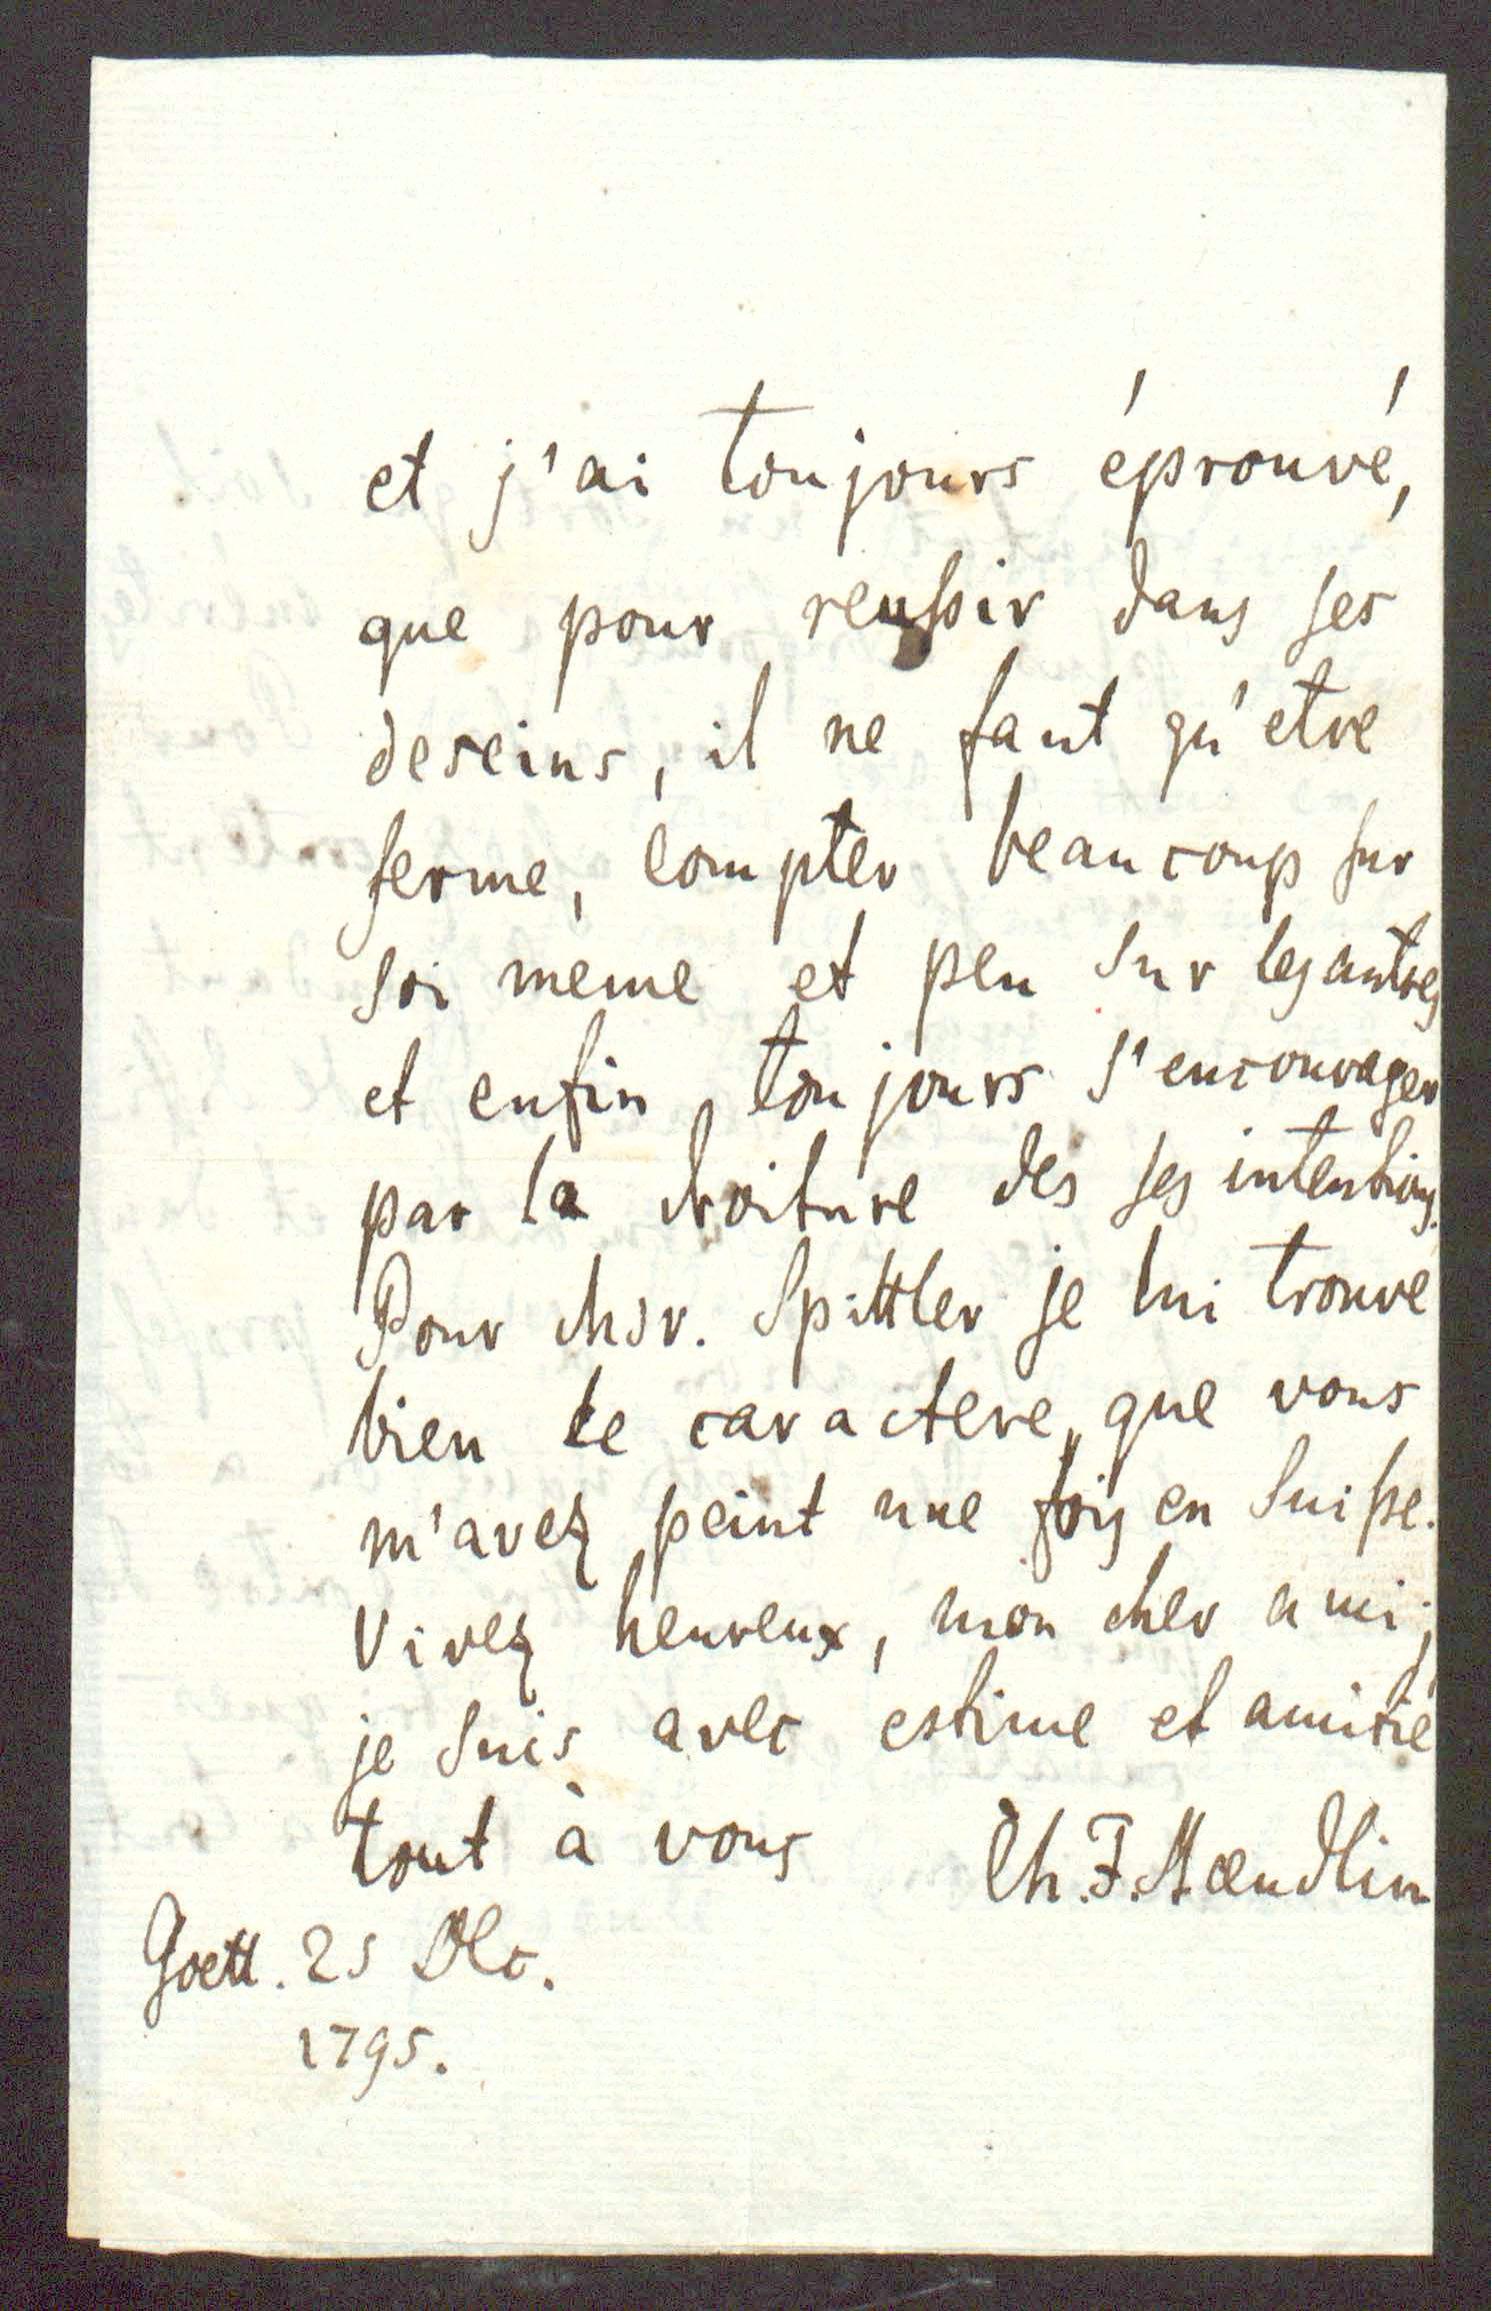 et j'ai toujours éprouvé,
que pour reussir dans ses
deseins, il ne faut qu'etre
ferme, compter beaucoup sur
soi meme et peu sur les autres
et enfin toujours s'encourager
par la droiture des ses intentions.
Pour Msr. Spittler je lui trouve
bien le caractere, que vous
m'avez peint une fois en Suisse.
Vivez heureux, mon cher ami;
je suis avec estime et amitié
tout à vous Ch. F. Staeudlin
Goett. 25 Dec.
1795.